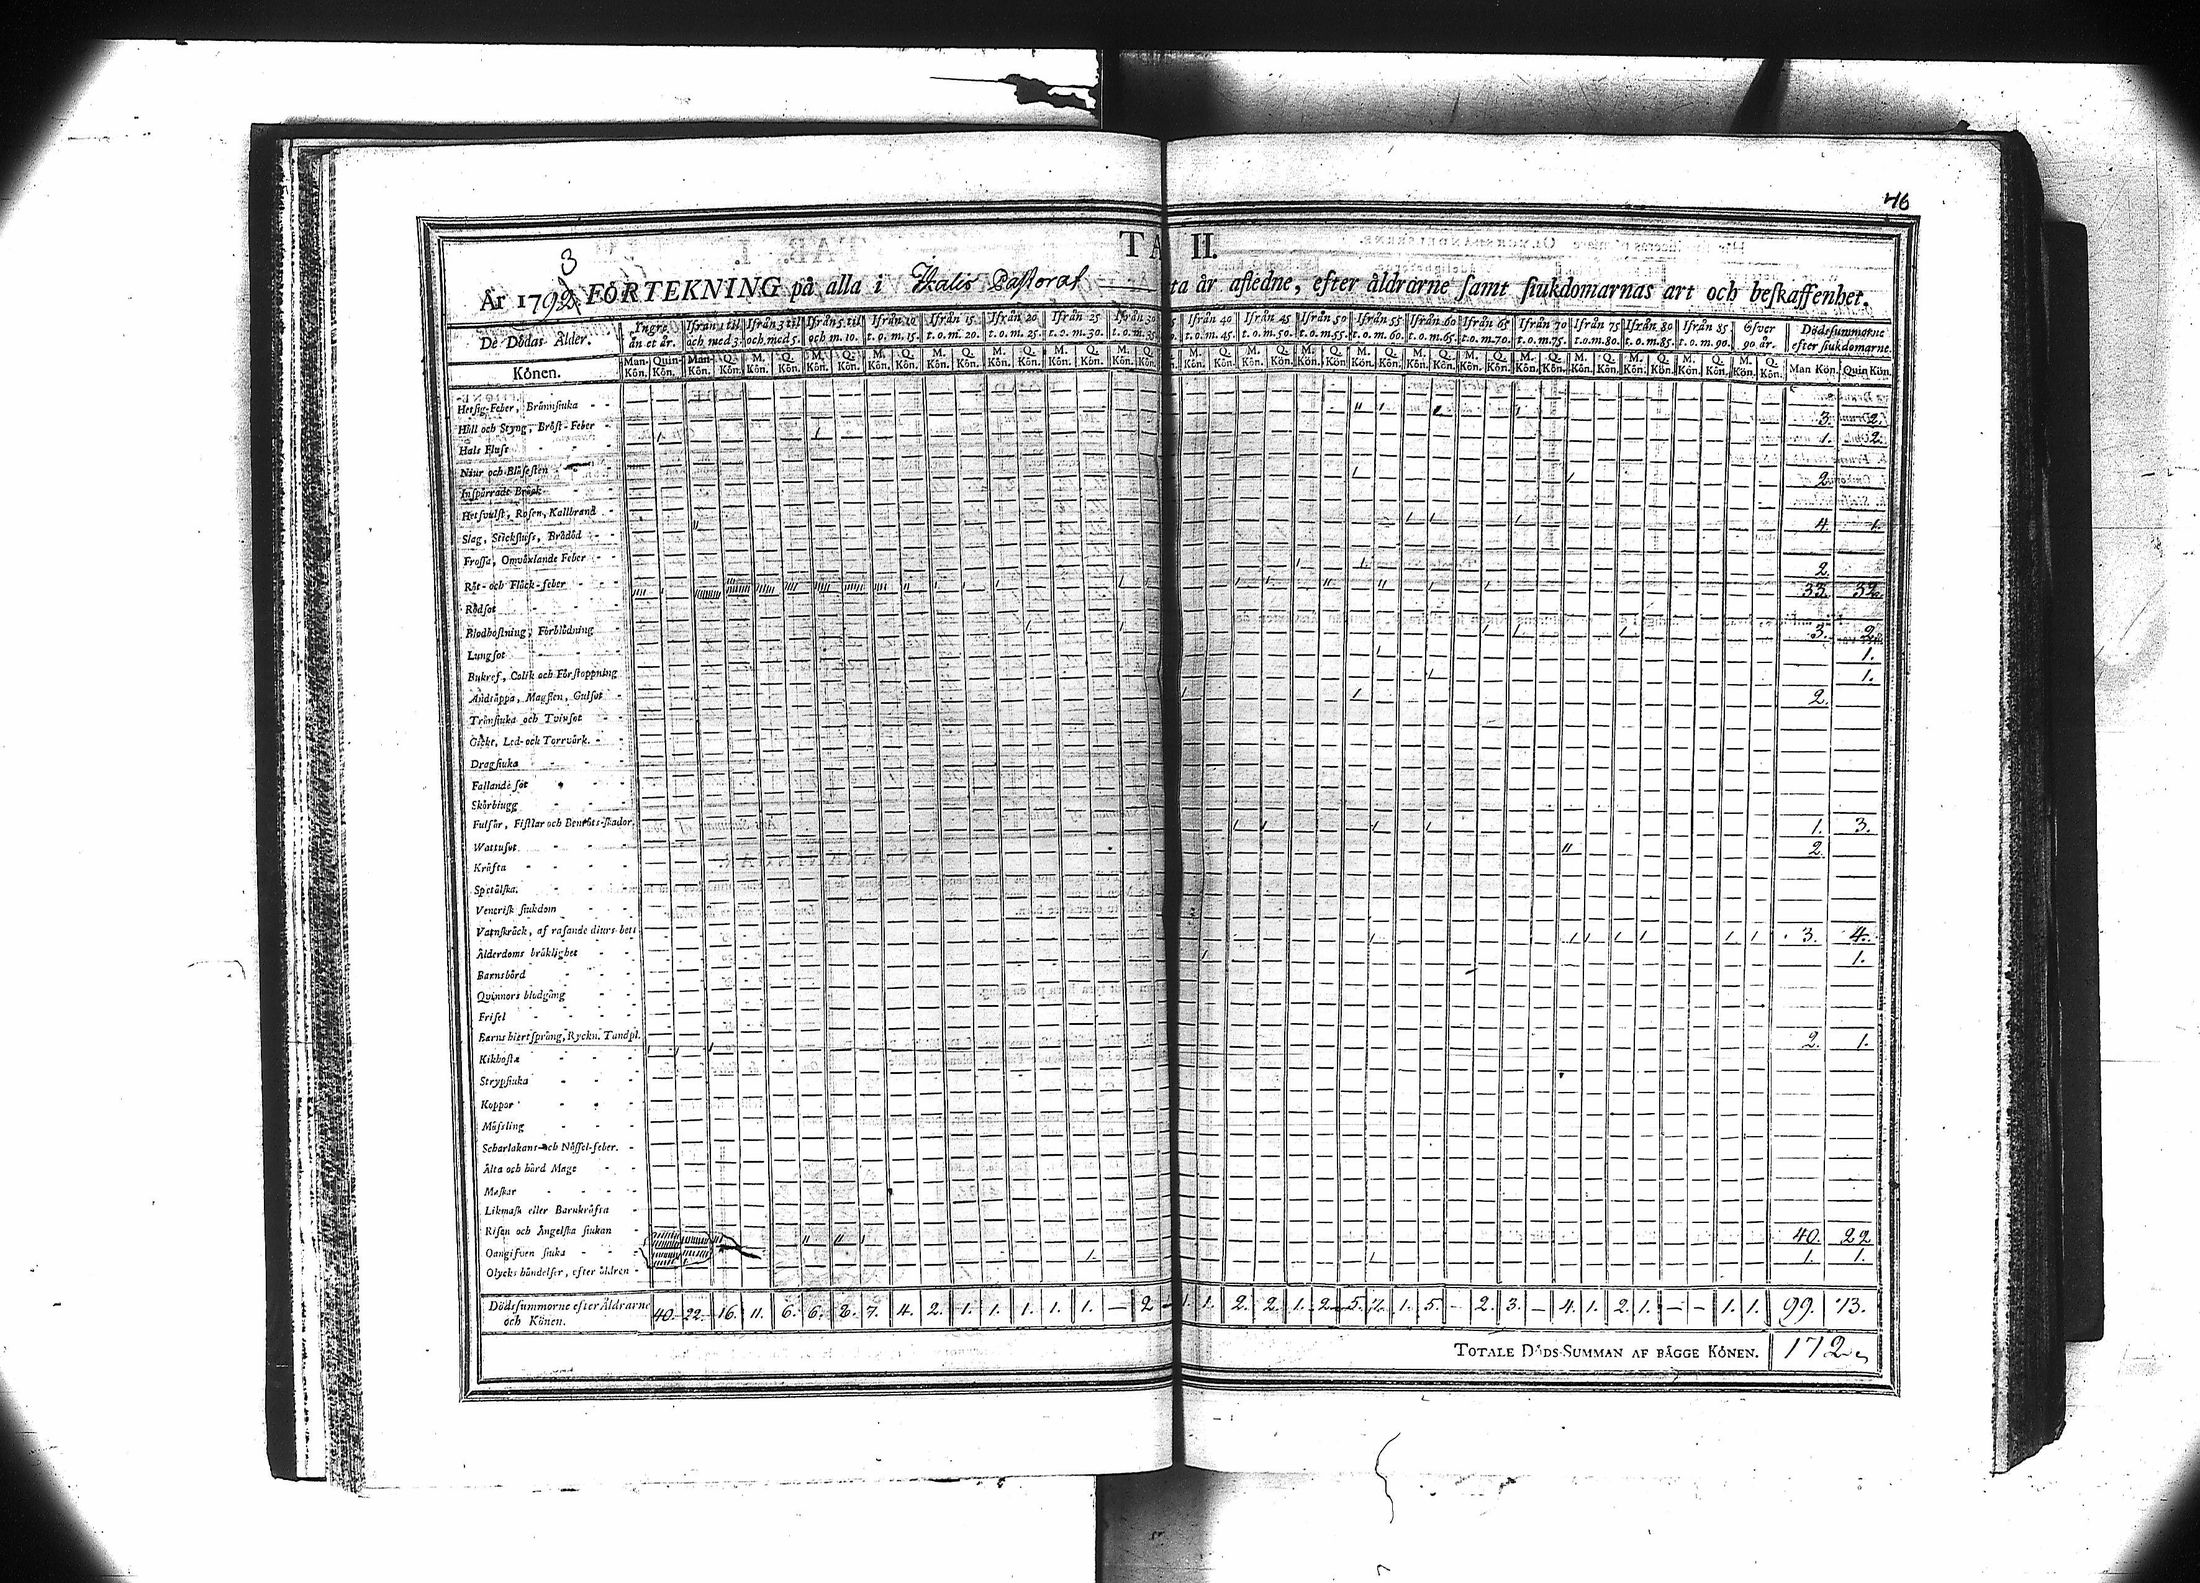 46
TA II.
3
År 1792 FÖRTEKNING på alla i Kalis Pastorat ta år aflednе, efter åldrarne samt siukdomarnas art och beskaffenhet.
De Dödas Ålder. Yngre än et år. Ifrån 1 til och med 3. Ifrån 3 til och med 5. Ifrån 5 til och m. 10. Ifrån 10 t. o. m. 15. Ifrån 15 t. o. m. 20. Ifrån 20 t. o. m. 25. Ifrån 25 t. o. m. 30. Ifrån 30 t. o. m. 35. Ifrån 40 t. o. m. 45. Ifrån 45 t. o. m. 50. Ifrån 50 t. o. m. 55. Ifrån 55 t. o. m. 60. Ifrån 60 t. o. m. 65. Ifrån 65 t. o. m. 70. Ifrån 70 t. o. m. 75. Ifrån 75 t. o. m. 80. Ifrån 80 t. o. m. 85. Ifrån 85 t. o. m. 90. Öfver 90. år. Dödessummorne efter siukdomarne.
Könen. Man-Kön. Quin-Kön. Man-Kön. Q. Kön. M. Kön. Q. Kön. M. Kön. Q. Kön. Man Kön. Quin Kön.
Hetsig-Feber, Brännsiuka
Håll och Styng, Bröst-Feber 3. 2.
Hals Fluss 1. 2.
Niur och Blåsesten
Inspärrade Bråck 2.
Hetsvulst, Rosen, Kallbrand
Slag, Stickfluss, Brådöd 4. 1.
Frossa, Omväxlande Feber
Röt- och Fläck-feber 2.
Rödsot 33. 32.
Blodhostning, Förblödning
Lungsot 3. 2.
Bukref, Colik och Förstoppning 1.
Andtäppa, Magsten, Gulsot 1.
Trånsiuka och Tvinsot 2.
Gickt, Led- och Torrvärk.
Dragsiuka
Fallande sot
Skörbiugg
Fulsår, Fistlar och Benröts-skador.
Wattusot 1. 3.
Kräfta 2.
Spetälska.
Venerisk siukdom
Vatnskräck, af rasande diurs bett
Ålderdoms bräklighet 3. 4.
Barnsbörd 1.
Qvinnors blodgång
Frisel
Barns hiertsprång, Ryckn. Tandpl.
Kikhosta 2. 1.
Strypsiuka
Koppor
Mässling
Scharlakans- och Nässel-feber.
Älta och hård Mage
Maskar
Likmask eller Barnkräfta
Risen och Ängelska siukan
Oangifven siuka 40. 22
Olycks händelser, efter åldren 1. 1.
Dödssummorne efter Åldrarne och Könen. 40. 22. 16. 11. 6. 6. 8. 7. 4. 2. 1. 1. 1. 1. 1. — 2 — 1. 1. 2. 2. 1. 2 5. 4. 1. 5. — 2. 3. — 4. 1. 2. 1. — — 1. 1. 99. 73.
TOTALE DÖDS-SUMMAN AF BÄGGE KÖNEN. 172